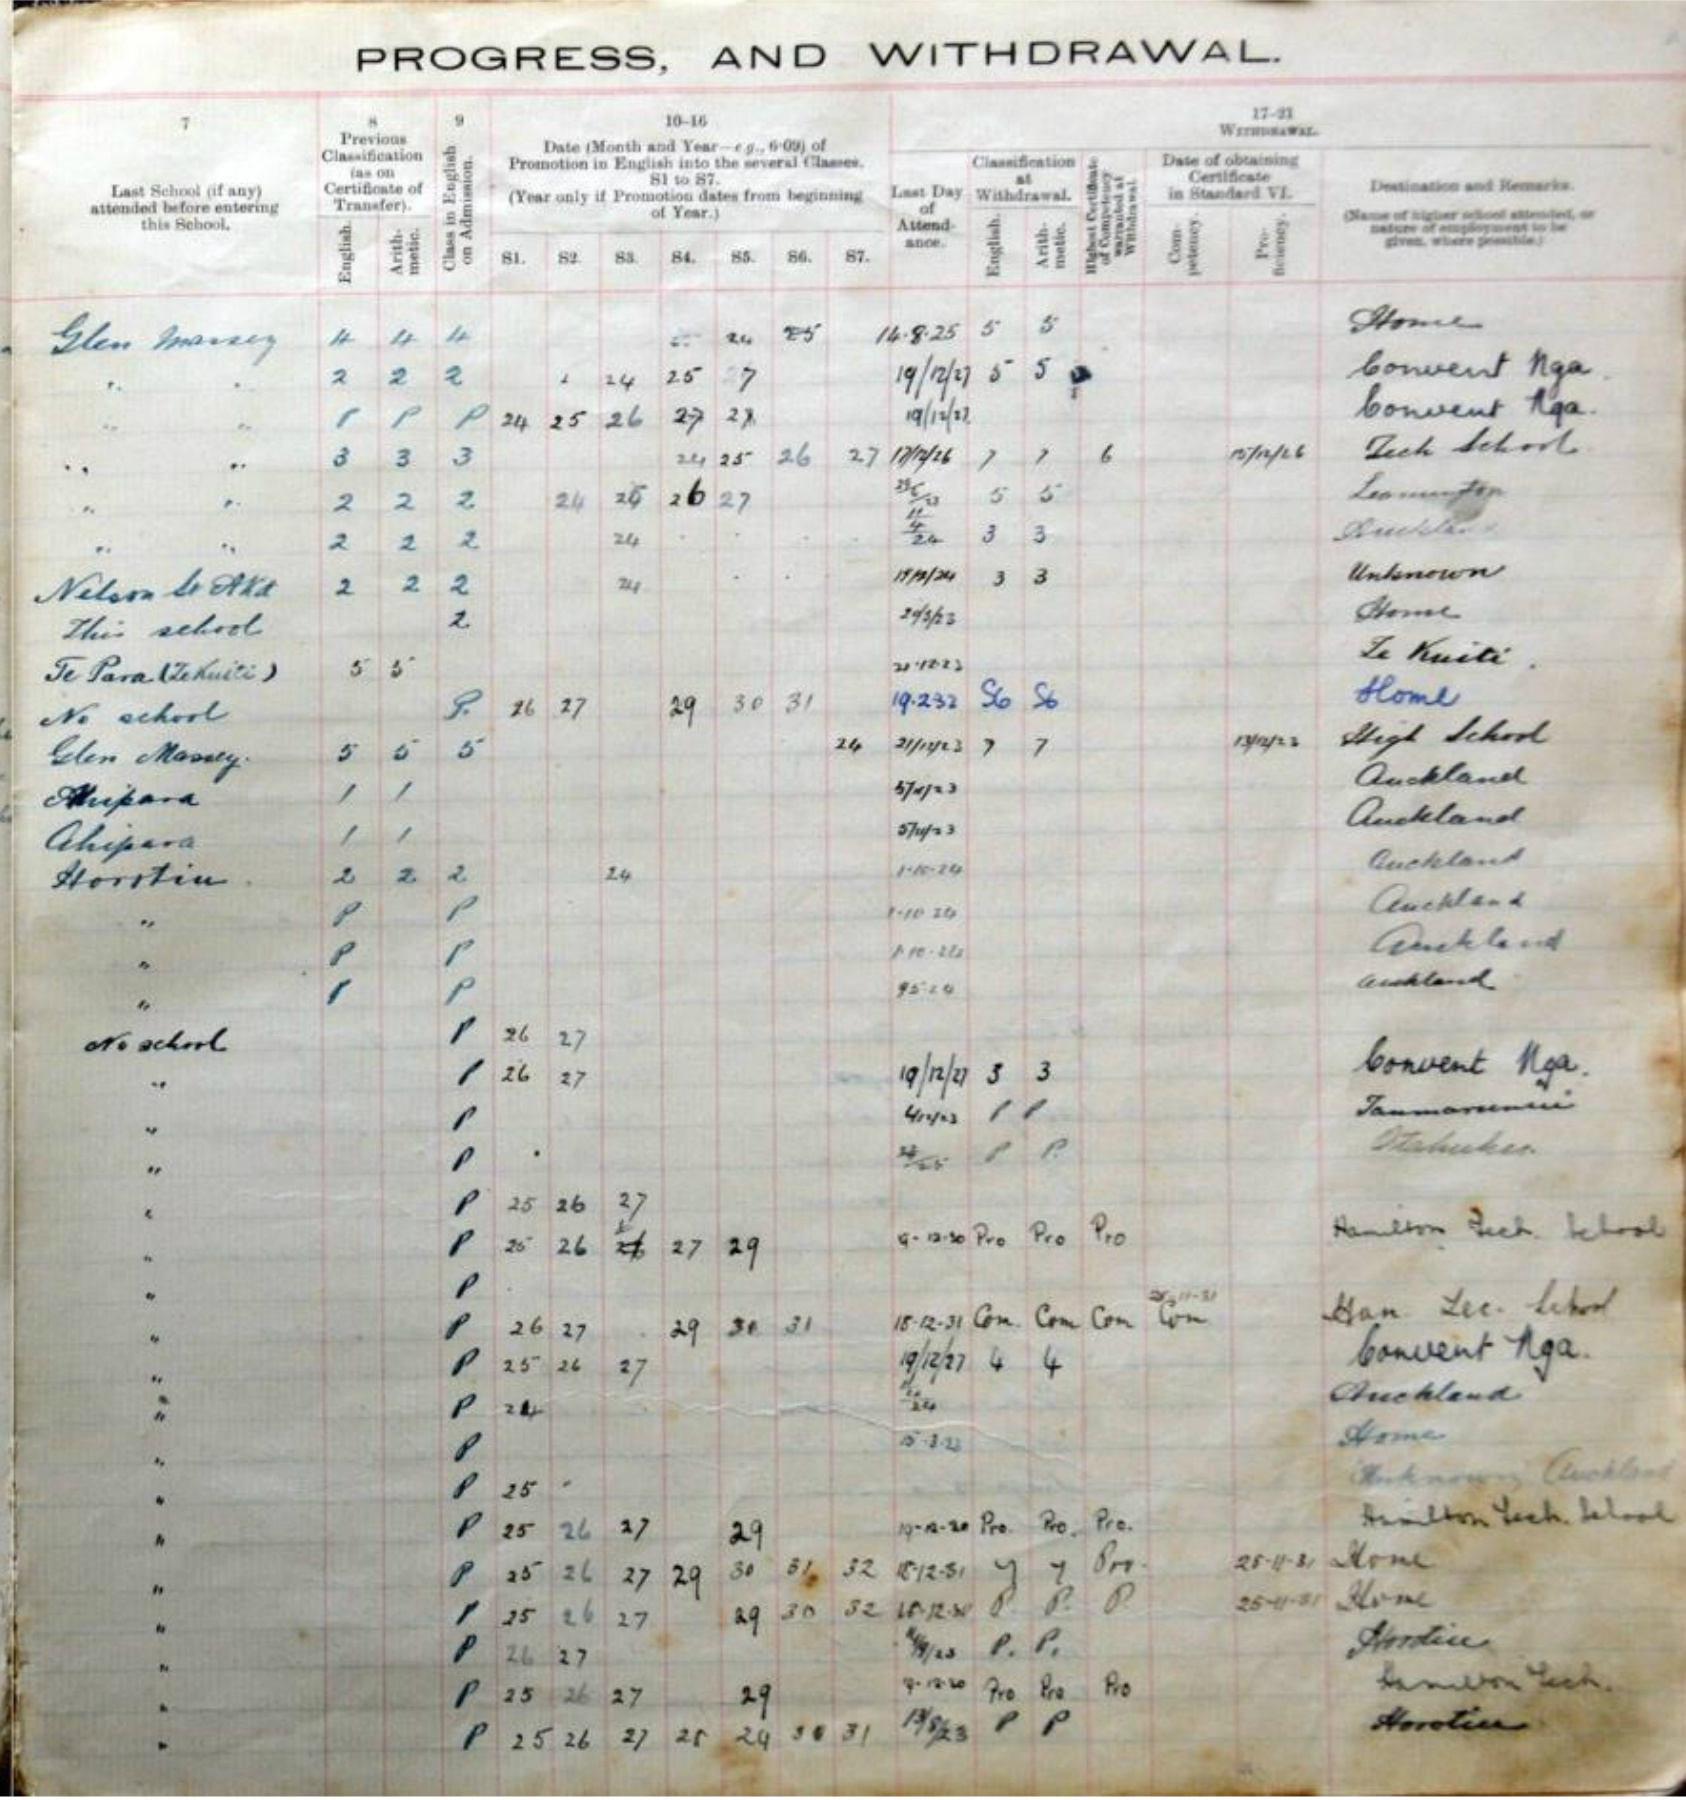 PROGRESS, AND WITHDRAWAL.
7
Last School (if any)
attended before entering
this School.
8
Previous
Classification
(as on
Certificate of
Transfer).
English.
Arith-
metic.
9
Class in English
on Admission.
10–16
Date (Month and Year—e.g., 6·09) of
Promotion in English into the several Classes.
S1 to S7.
(Year only if Promotion dates from beginning
of Year.)
S1. S2. S3. S4. S5. S6. S7.
17–21
WITHDRAWAL.
Last Day
of
Attend-
ance.
Classification
at
Withdrawal.
English.
Arith-
metic.
Highest Certificate
of Competency
warranted at
Withdrawal.
Date of obtaining
Certificate
in Standard VI.
Com-
petency.
Pro-
ficiency.
Destination and Remarks.
(Name of higher school attended, or
nature of employment to be
given, where possible.)
Glen Massey 4 4 4 24 25 14·8·25 5 5 Home
" " 2 2 2 24 25 27 19/12/27 5 5 Convent Nga.
" " P P P 24 25 26 27 19/12/27 Convent Nga.
" " 3 3 3 24 25 26 27 17/12/26 7 7 6 15/12/26 Tech School
" " 2 2 2 24 25 26 27 5 5 Leamington
" " 2 2 2 24 11/4/24 3 3 Auckland
Nelson St Akd 2 2 2 24 19/12/24 3 3 Unknown
This school 2 Home
Te Para (Te Kuiti) 5 5 Te Kuiti.
No school P. 26 27 29 30 31 19.2.32 S6 S6 Home
Glen Massey. 5 5 5 24 21/12/23 7 7 13/12/23 High School
Ahipara 1 1 5/11/23 Auckland
Ahipara 1 1 5/11/23 Auckland
Horotiu. 2 2 2 24 1-10-24 Auckland
" P P 1-10-24 Auckland
" P P 1-10-24 Auckland
" P P 9 5 24 Auckland
No school P 26 27
" P 26 27 19/12/27 3 3 Convent Nga.
" P 4/12/23 P P Taumarunui
" P P P. Otahuhu
" P 25 26 27
" P 25 26 27 29 9-12-30 Pro Pro Pro Hamilton Tech. School
" P
" P 26 27 29 30 31 18-12-31 Com. Com Com 25-11-31 Com Ham. Tec. School
" P 25 26 27 19/12/27 4 4 Convent Nga.
" P 24 Auckland
" P 15-3-23 Home
" P 25 - Unknown Auckland
" P 25 26 27 29 Pro. Pro. Pro. Hamilton Tech. School
" P 25 26 27 29 30 31 32 18-12-31 7 7 Pro. 25-11-31 Home
" P 25 26 27 29 30 32 P. P. P 25-11-31 Home
" P 26 27 P. P. Horotiu
" P 25 26 27 29 9-12-30 Pro Pro Pro Hamilton Tech.
" P 25 26 27 28 29 30 31 13/8/23 P P Horotiu